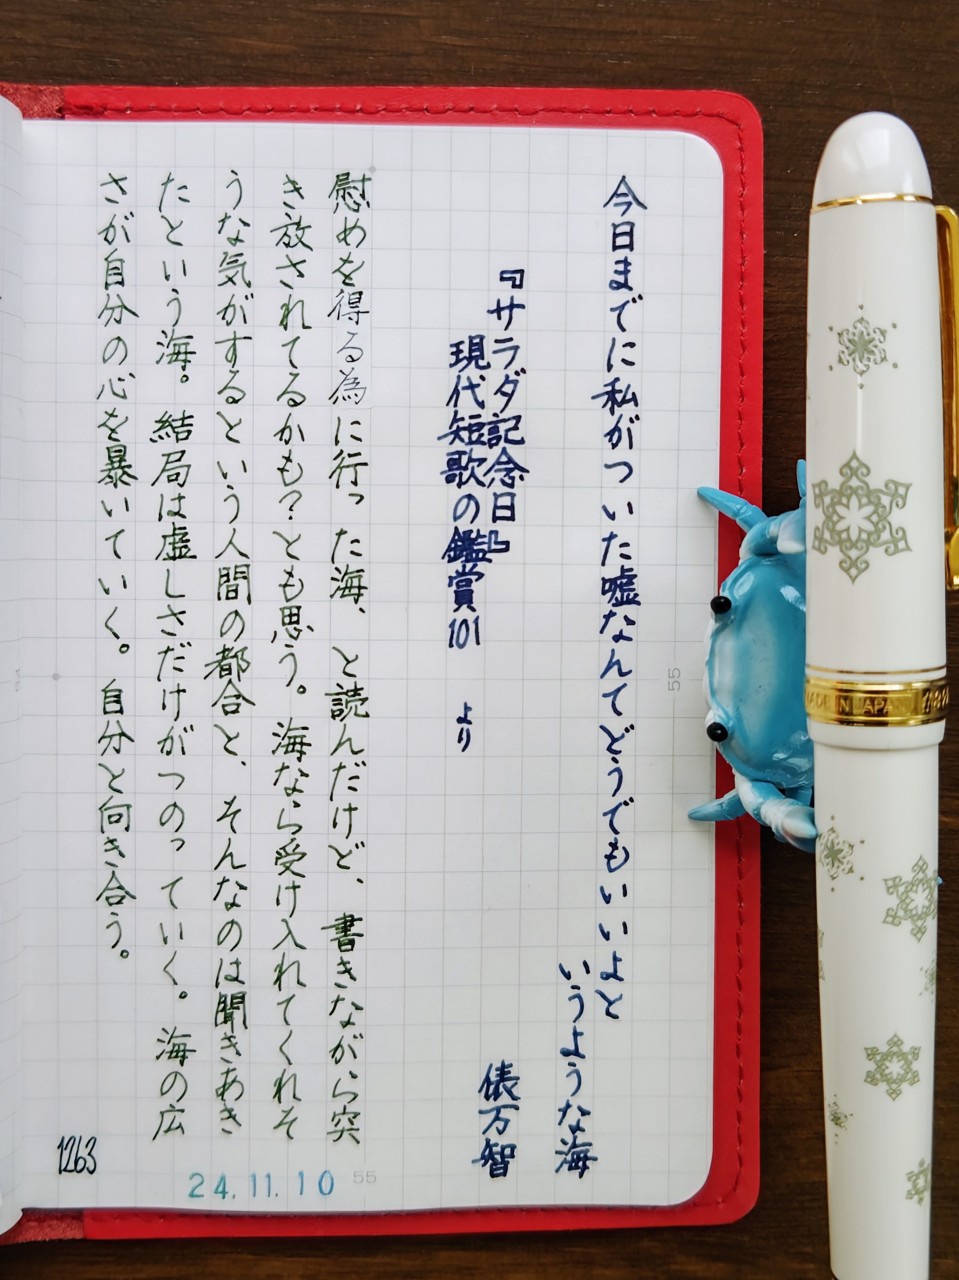 今日までに私がついた嘘なんてどうでもいいよと
いうような海
俵万智
『サラダ記念日』
現代短歌の鑑賞101 より
慰めを得る為に行った海、と読んだけど、書きながら突
き放されてるかも？とも思う。海なら受け入れてくれそ
うな気がするという人間の都合と、そんなのは聞きあき
たという海。結局は虚しさだけがつのっていく。海の広
さが自分の心を暴いていく。自分と向き合う。
24.11.10
1263
55
55
MADE IN JAPAN